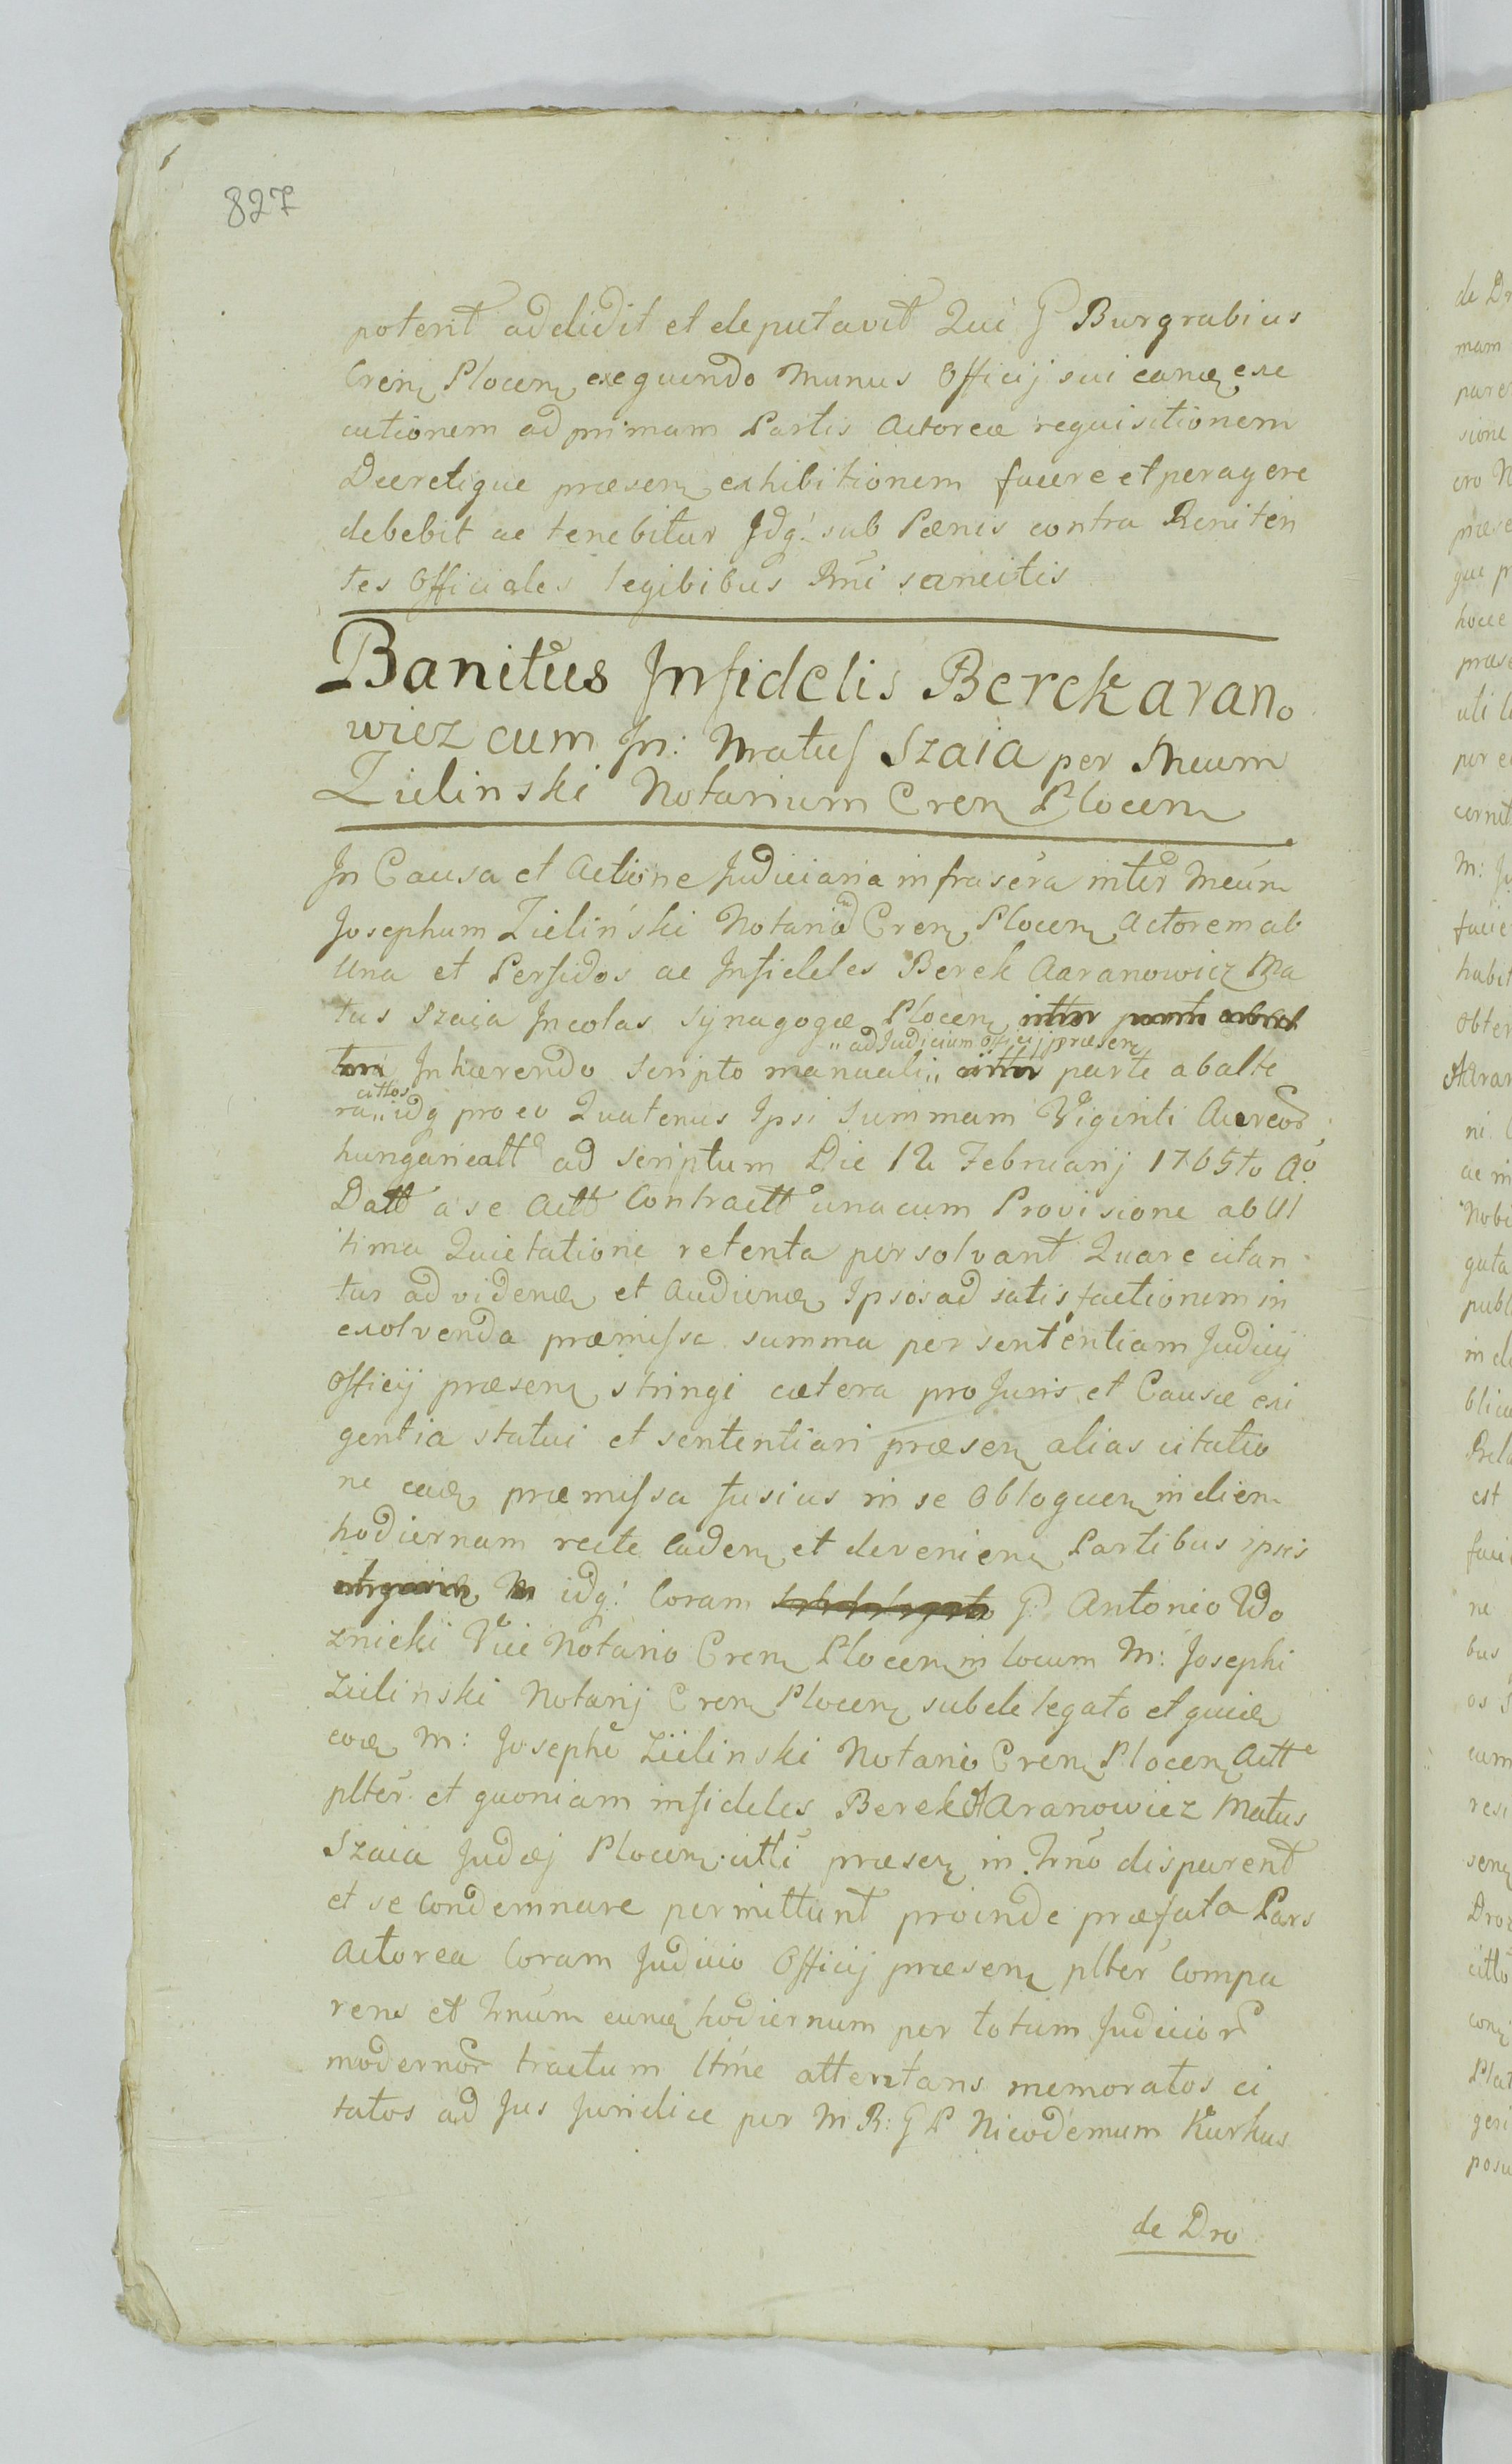 827
poterit addidit et deputavit Qui G Burgrabius
Cren Plocen exequendo Munus Officij sui eanq exe
cutionem ad primam Partis Actoreæ requisitionem
Decretique præsen exhibitionem facere et peragere
debebit ac tenebitur Jdq: sub Pænis contra Reniten
tes Officiales legibibus Rni sancitis
Banitus Jnfidelis Berek aran
wicz cum Jn: Matus Szaia per Meum
Zielinski Notarium Cren Plocen
Jn Causa et Actione Judiciaria infrascra inter Mcum
Josephum Zieliński Notariu Cren Plocen Actorem ab
Una et Perfidos ac Jnfideles Berek Aaranowicz Ma
tus Szaia Jncolas Synagogæ Plocen
"ad Judicium Officij præsen
Jnhærendo scripto manuali" parte ab alte
cittos
ra" idq pro eo Quatenus Ipsi Summam Viginti Aureor
hungaricalt ad scriptum Die 12 Februarij 1765to Ao
Datt a se Actt Contractt una cum Provisione ab Ul
tima Quietatione retenta persolvant Quare citan
tur ad videnq et Audienq Ipsos ad satisfactionem in
exolvenda præmissa summa per sententiam Judicij
Officij præsen stringi cætera pro Juris et Causæ exi
gentia statui et sententiari præsen alias citatio
ne eadq præmissa fusius in se Obloquen in diem
hodiernam recte Caden et devenien Partibus ipsis
idq: Coram G. Antonio Wo
znicki Vice Notario Cren Plocen in locum M: Josephi
Zielinski Notarij Cren Plocen subdelegato et quidq
eodq M: Josepho Zielinski Notario Cren Plocen Actte
plter et quoniam infideles Berek Aaranowicz Matus
Szaia Judæj Plocen citti præsen in Trno disparent
et se Condemnare permittunt proinde præfata Pars
Actorea Coram Judicio Officij præsen plter Compa
rens et Trnum eunq hodiernum per totum Judicior
modernor tractum ltme attentans memoratos ci
tatos ad Jus Juridice per M R: G P Nicodemum Kurkus
de Dro